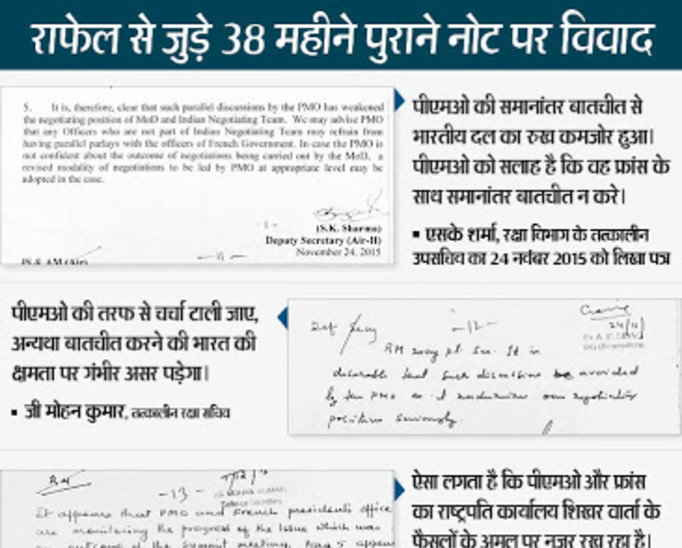 राफेल से जुड़े 38 महीने पुराने नोट पर विवाद
5. It is, therefore, clear that such parallel discussions by the PMO has weakened
the negotiating position of MoD and Indian Negotiating Team. We may advise PMO
that any Officers who are not part of Indian Negotiating Team may refrain from
having parallel parlays with the officers of French Government. In case the PMO is
not confident about the outcome of negotiations being carried out by the MoD, a
revised modality of negotiations to be led by PMO at appropriate level may be
adopted in the case.
(S.K. Sharma)
Deputy Secretary (Air-II)
November 24, 2015
-11-
JS & AM (Air)
पीएमओ की समानांतर बातचीत से
भारतीय दल का रुख कमजोर हुआ।
पीएमओ को सलाह है कि वह फ्रांस के
साथ समानांतर बातचीत न करे।
▪ एसके शर्मा, रक्षा विभाग के तत्कालीन
उपसचिव का 24 नवंबर 2015 को लिखा पत्र
पीएमओ की तरफ से चर्चा टाली जाए,
अन्यथा बातचीत करने की भारत की
क्षमता पर गंभीर असर पड़ेगा।
▪ जी मोहन कुमार, तत्कालीन रक्षा सचिव
-12-
24/11
RM may pl. see. It is
desirable that such discussions be avoided
by the PMO as it undermines our negotiating
position seriously.
RM
-13-
It appears that PMO and French president's office
are monitoring the progress of the issue which was
an outcome of the summit meeting. Para 5 appears
ऐसा लगता है कि पीएमओ और फ्रांस
का राष्ट्रपति कार्यालय शिखर वार्ता के
फैसलों के अमल पर नजर रख रहा है।